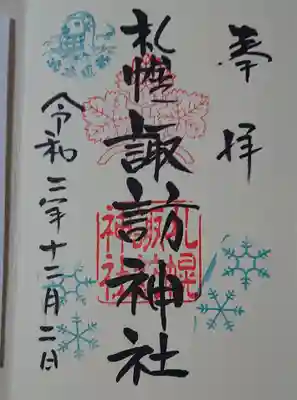 奉拝
札幌諏訪神社
札幌諏訪神社
令和三年十二月二日